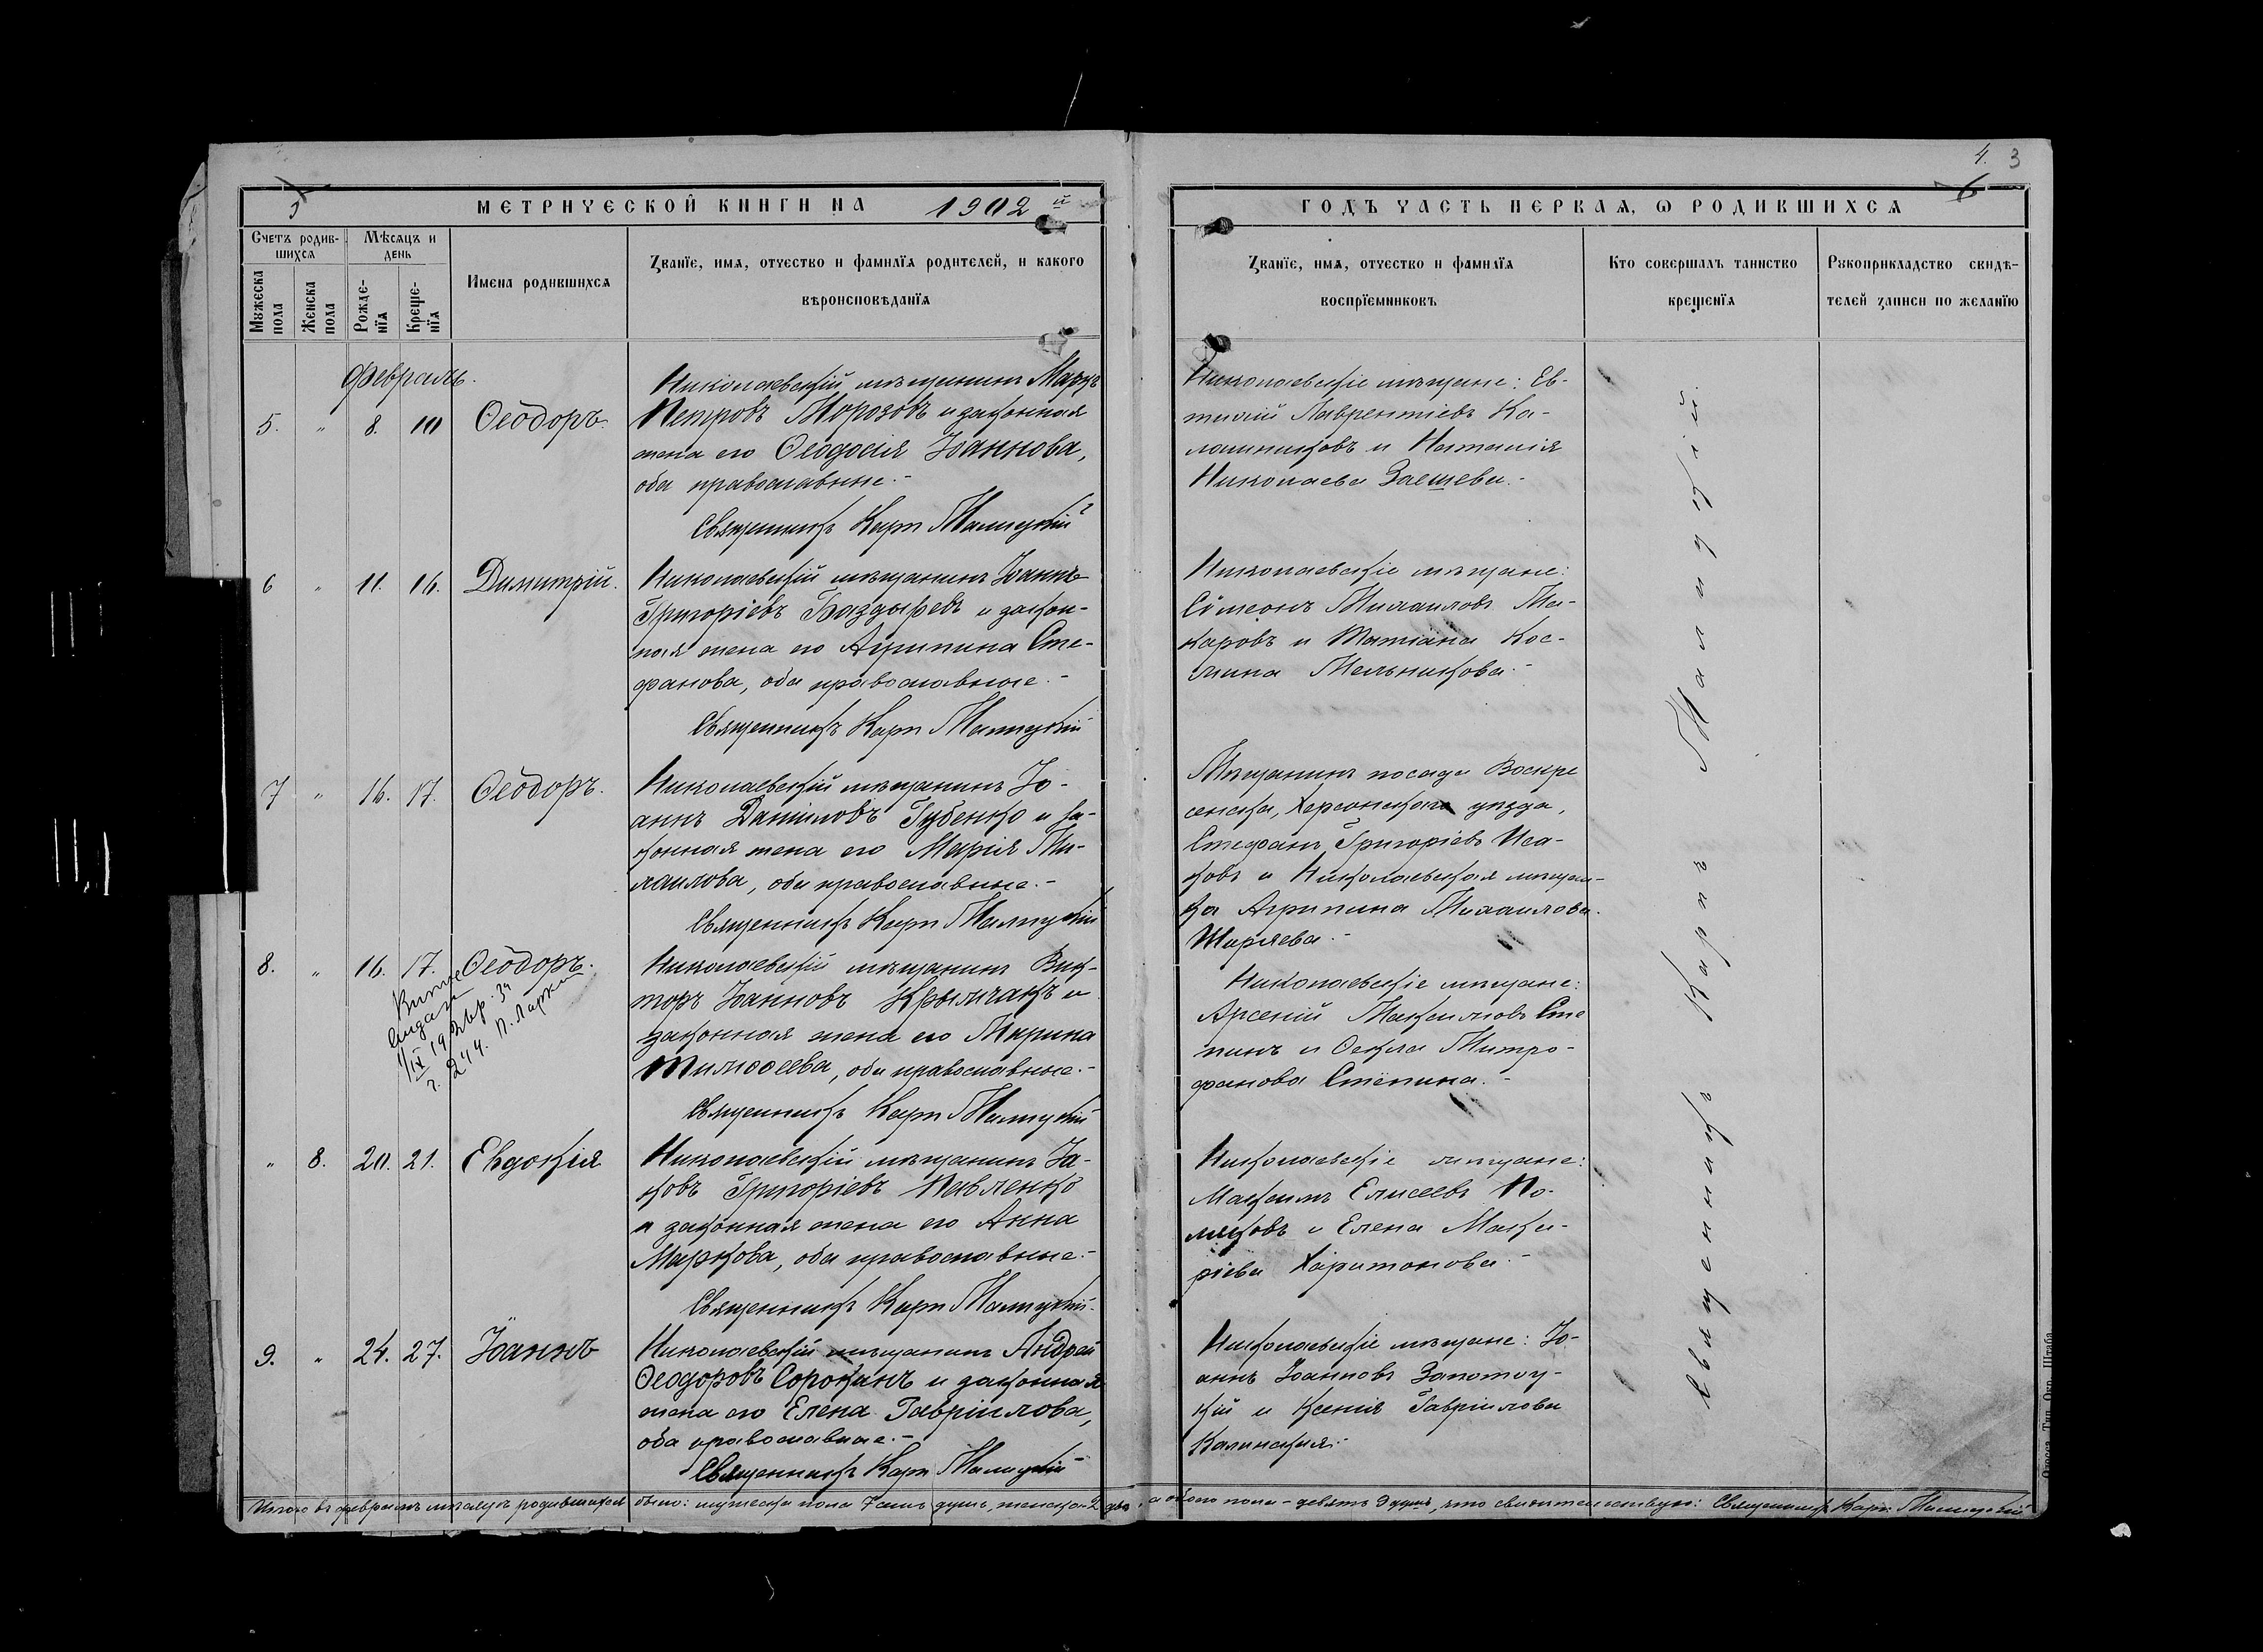 4. 3
5
6
МЕТРИЧЕСКОЙ КНИГИ НА 1902 й
ГОДЪ ЧАСТЬ ПЕРВАЯ, Ѡ РОДИВШИХСЯ
Счетъ родив-
шихся
Мужеска
пола
Женска
пола
Мѣсяцъ и
день
Рожде-
нїя
Креще-
нїя
Имена родившихся
Званїе, имя, отчество и фамилїя родителей, и какого
вѣроисповѣданїя
Званїе, имя, отчество и фамилїя
воспрїемниковъ
Кто совершалъ таинство
крещенїя
Рукоприкладство свидѣ-
телей записи по желанїю
Февраль.
5. " 8. 10 Ѳеодоръ.
Николаевскій мѣщанинъ Маркъ
Петровъ Морозовъ и законная
жена его Ѳеодосія Іоаннова,
оба православные.-
Священникъ Карпъ Малицкій
Николаевскіе мѣщане: Ев-
тихій Лаврентіевъ Ка-
лашниковъ и Наталія
Николаева
6 " 11. 16. Димитрій.
Николаевскій мѣщанинъ Іоаннъ
Григоріевъ Баздыревъ и закон-
ная жена его Агрипина Сте-
фанова, оба православные.-
Священникъ Карпъ Малицкій
Николаевскіе мѣщане:
Сѵмеонъ Михаиловъ Ма-
каровъ и Татіана Кос-
мина Мельникова.-
7 " 16. 17. Ѳеодоръ.
Николаевскій мѣщанинъ Іо-
аннъ Даніиловъ Губенко и за-
конная жена его Марія Ми-
хаилова, оба православные.-
Священникъ Карпъ Малицкій
Мѣщанинъ посада Воскре
сенска, Херсонскаго уѣзда,
Стефанъ Григоріевъ Иса-
ковъ и Николаевская мѣщан-
ка Агрипина Михаилова
Ширяева.-
8. " 16. 17. Ѳеодоръ.
г. 244. П. Ларкин
Николаевскій мѣщанинъ Вик-
торъ Іоанновъ Крымчакъ и
законная жена его Марина
Тимоѳеева, оба православные.-
Священникъ Карпъ Малицкій
Николаевскіе мѣщане:
Арсеній Максимовъ Сте
пинъ и Ѳекла Митро-
фанова Степина.-
" 8. 20. 21. Евдокія
Николаевскій мѣщанинъ Іа-
ковъ Григоріевъ Павленко
и законная жена его Анна
Маркова, оба православные.-
Священникъ Карпъ Малицкій.
Николаевскіе мѣщане:
Максимъ Елисеевъ По-
ляковъ и Елена Мака-
ріева Харитонова.-
9. " 24. 27. Іоаннъ
Николаевскій мѣщанинъ Андрей
Ѳеодоровъ Сорокинъ и законная
жена его Елена Гавріилова,
оба православные.-
Священникъ Карпъ Малицкій
Николаевскіе мѣщане: Іо-
аннъ Іоанновъ Запотоц-
кій и Ксенія Гавріилова
Калинская.-
Священникъ Карпъ Малицкій.
Итого въ февралѣ мѣсяцѣ родившихся было: мужеска пола 7 душъ, женска 2 двѣ, а обоего пола - девять 9 душъ, что свидетельствую: Священникъ Карпъ Малицкій
Одесса. Тип. Окр. Штаба